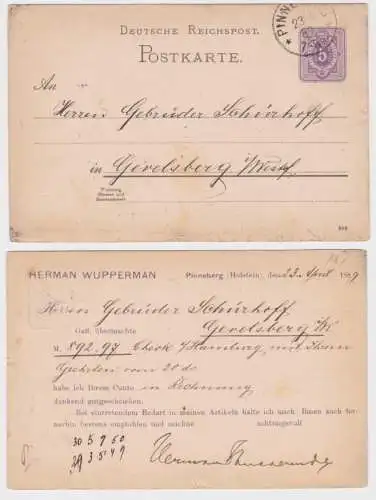 DEUTSCHE REICHSPOST.
POSTKARTE.
PINNE
23
5
An
Herren Gebrüder Schürhoff
in Gevelsberg i/Westf
Wohnung
HERMAN WUPPERMAN
Pinneberg (Holstein), den 23. April 1889
Herren Gebrüder Schürhoff
Gevelsberg i/W
Gutt. übermachte
M. 892.97 Check a/Hamburg, mit Ihrem
Geehrten vom 20 ds
habe ich Ihrem Conto in Rechnung
dankend gutgeschrieben.
Bei eintretendem Bedarf in meinen Artikeln halte ich mich Ihnen auch fernerhin bestens empfohlen und zeichne achtungsvoll
Herman Wupperman